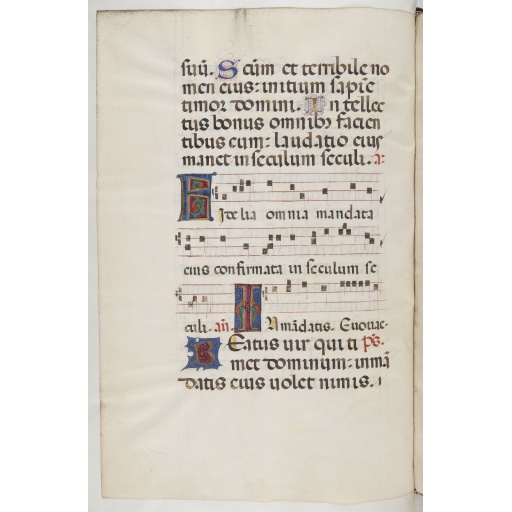 suū. Scūm et terribile no
men eius: initium sapiē
timor domini. Intellec
tus bonus omnibꝫ facien
tibus eum: laudatio eius
manet in seculum seculi. a:
Fidelia omnia mandata
eius confirmata in seculum se
culi. añ. In mādatis. Euouae.
Beatus uir qui ti ps.
met dominum: in mā
datis eius uolet nimis.